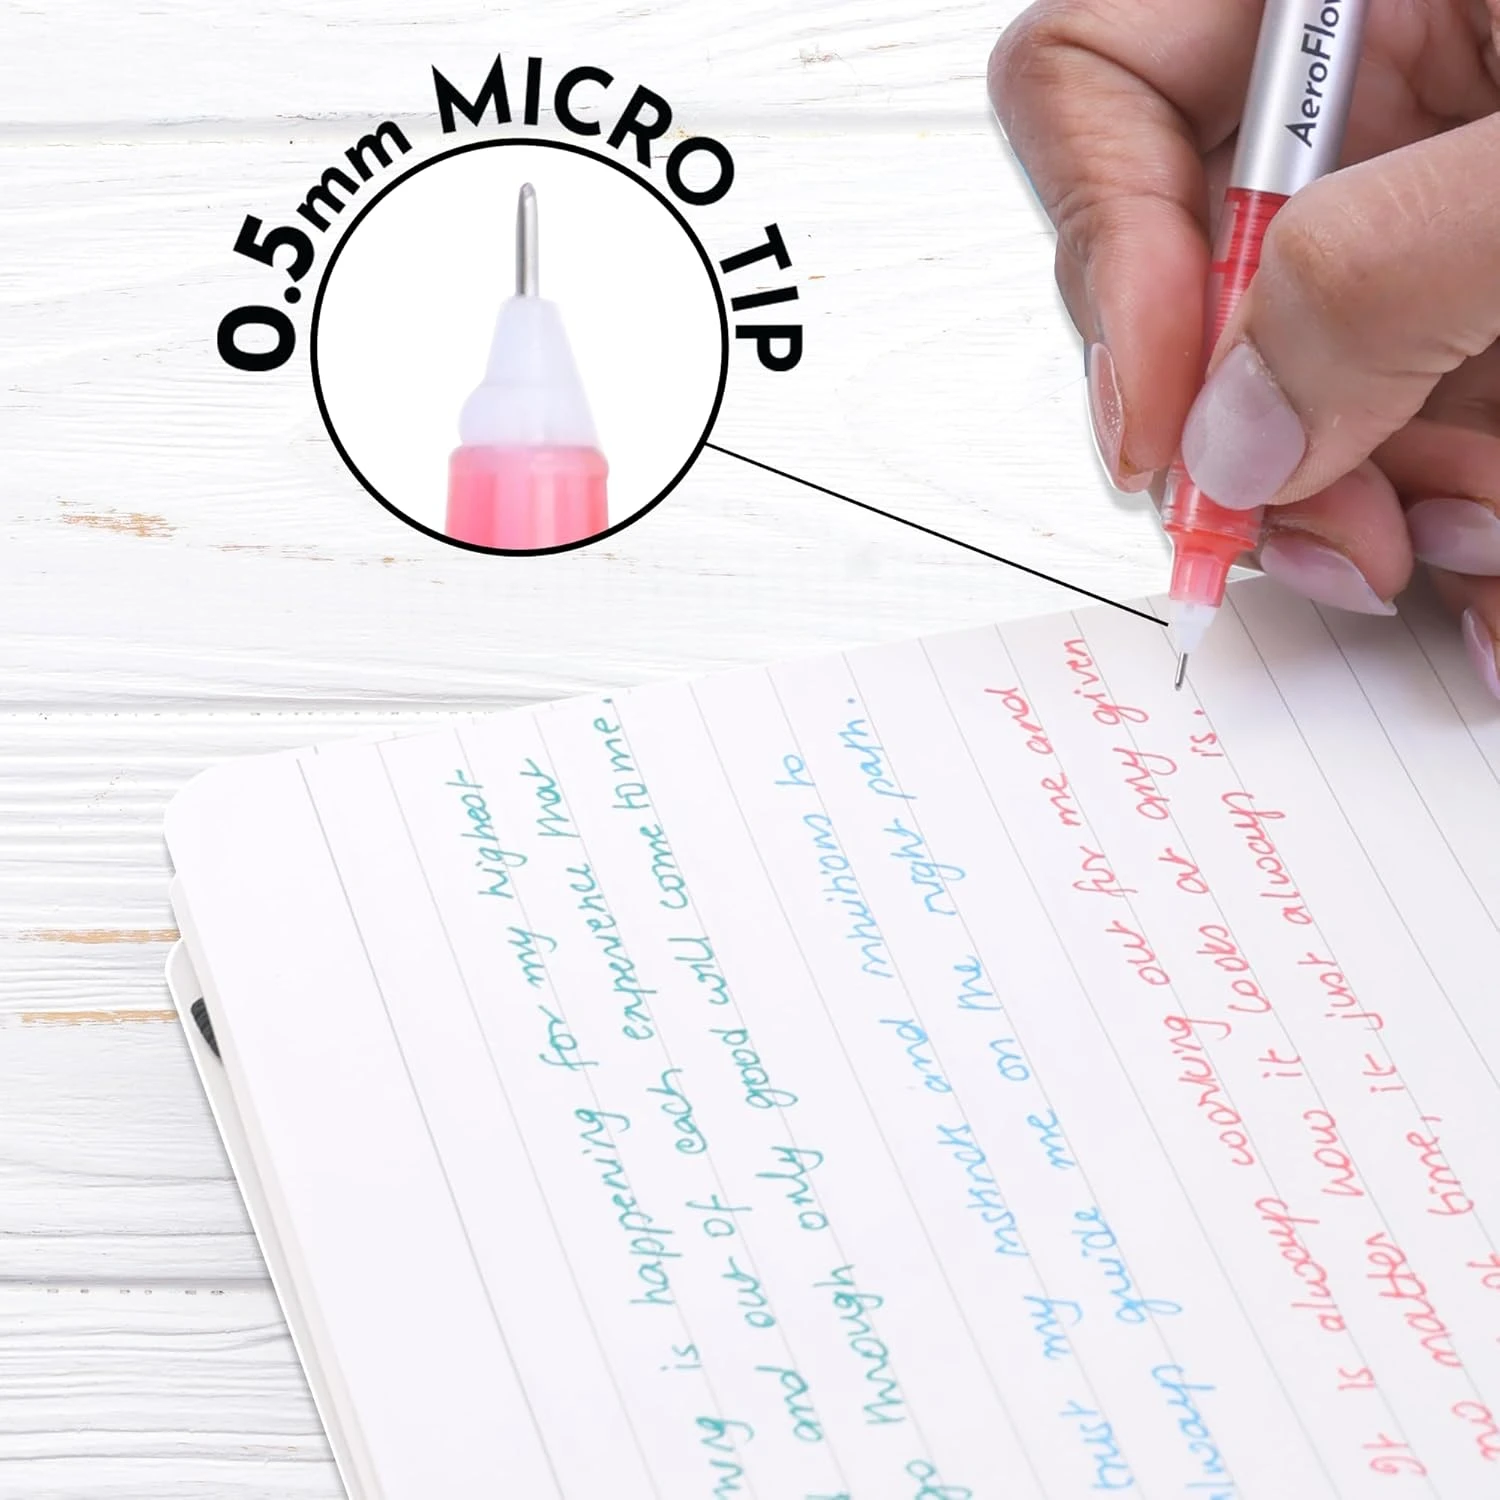 0.5mm MICRO TIP
AeroFlo
is happening for my highest
and out of each experience that
go though only good will come to me.
trust my instincts and intuitions to
always guide me on the right path.
It is always working out for me and
no matter how it looks at any given
time, it just always is.